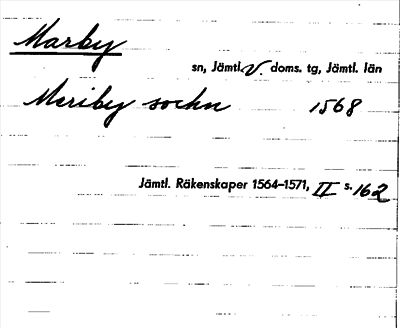 Marby
sn, Jämtl. V. doms. tg, Jämtl. län
Meriby sochn 1568
Jämtl. Räkenskaper 1564–1571, II s. 162